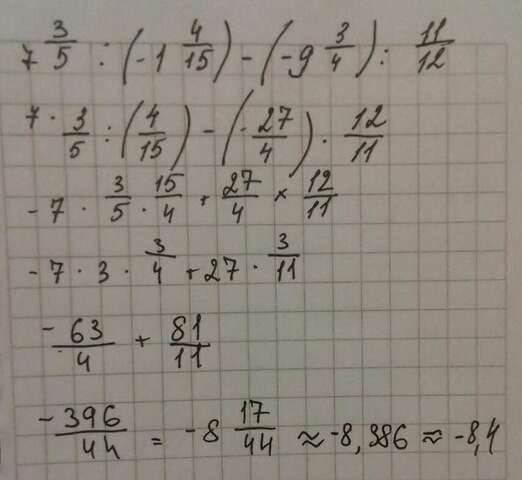 7 3/5 : (-1 4/15) - (-9 3/4) : 11/12
7 · 3/5 : (4/15) - (-27/4) · 12/11
-7 · 3/5 · 15/4 + 27/4 × 12/11
-7 · 3 · 3/4 + 27 · 3/11
-63/4 + 81/11
-396/44 = -8 17/44 ≈ -8,386 ≈ -8,4